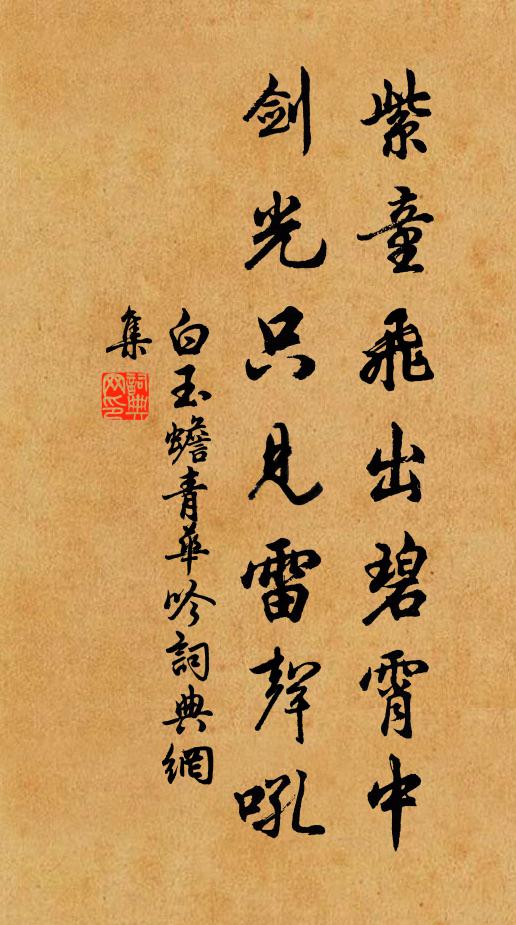 紫童飛出碧霄中
劍光只見雷聲吼
白玉蟾青華吟詞典網
集
詞典
网印